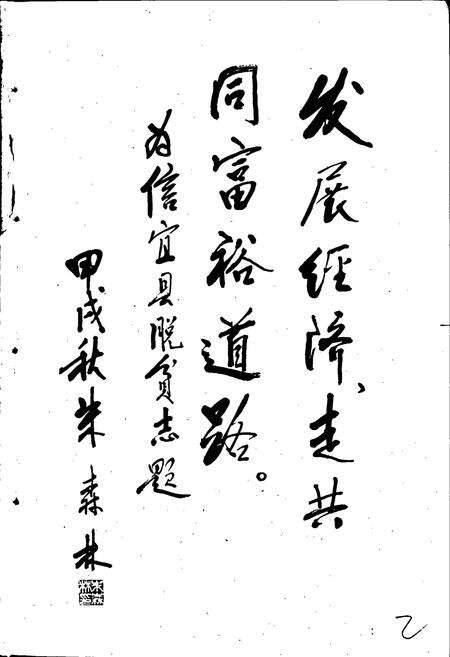 发展经济、走共
同富裕道路。
为信宜县脱贫志题
甲戌秋朱森林